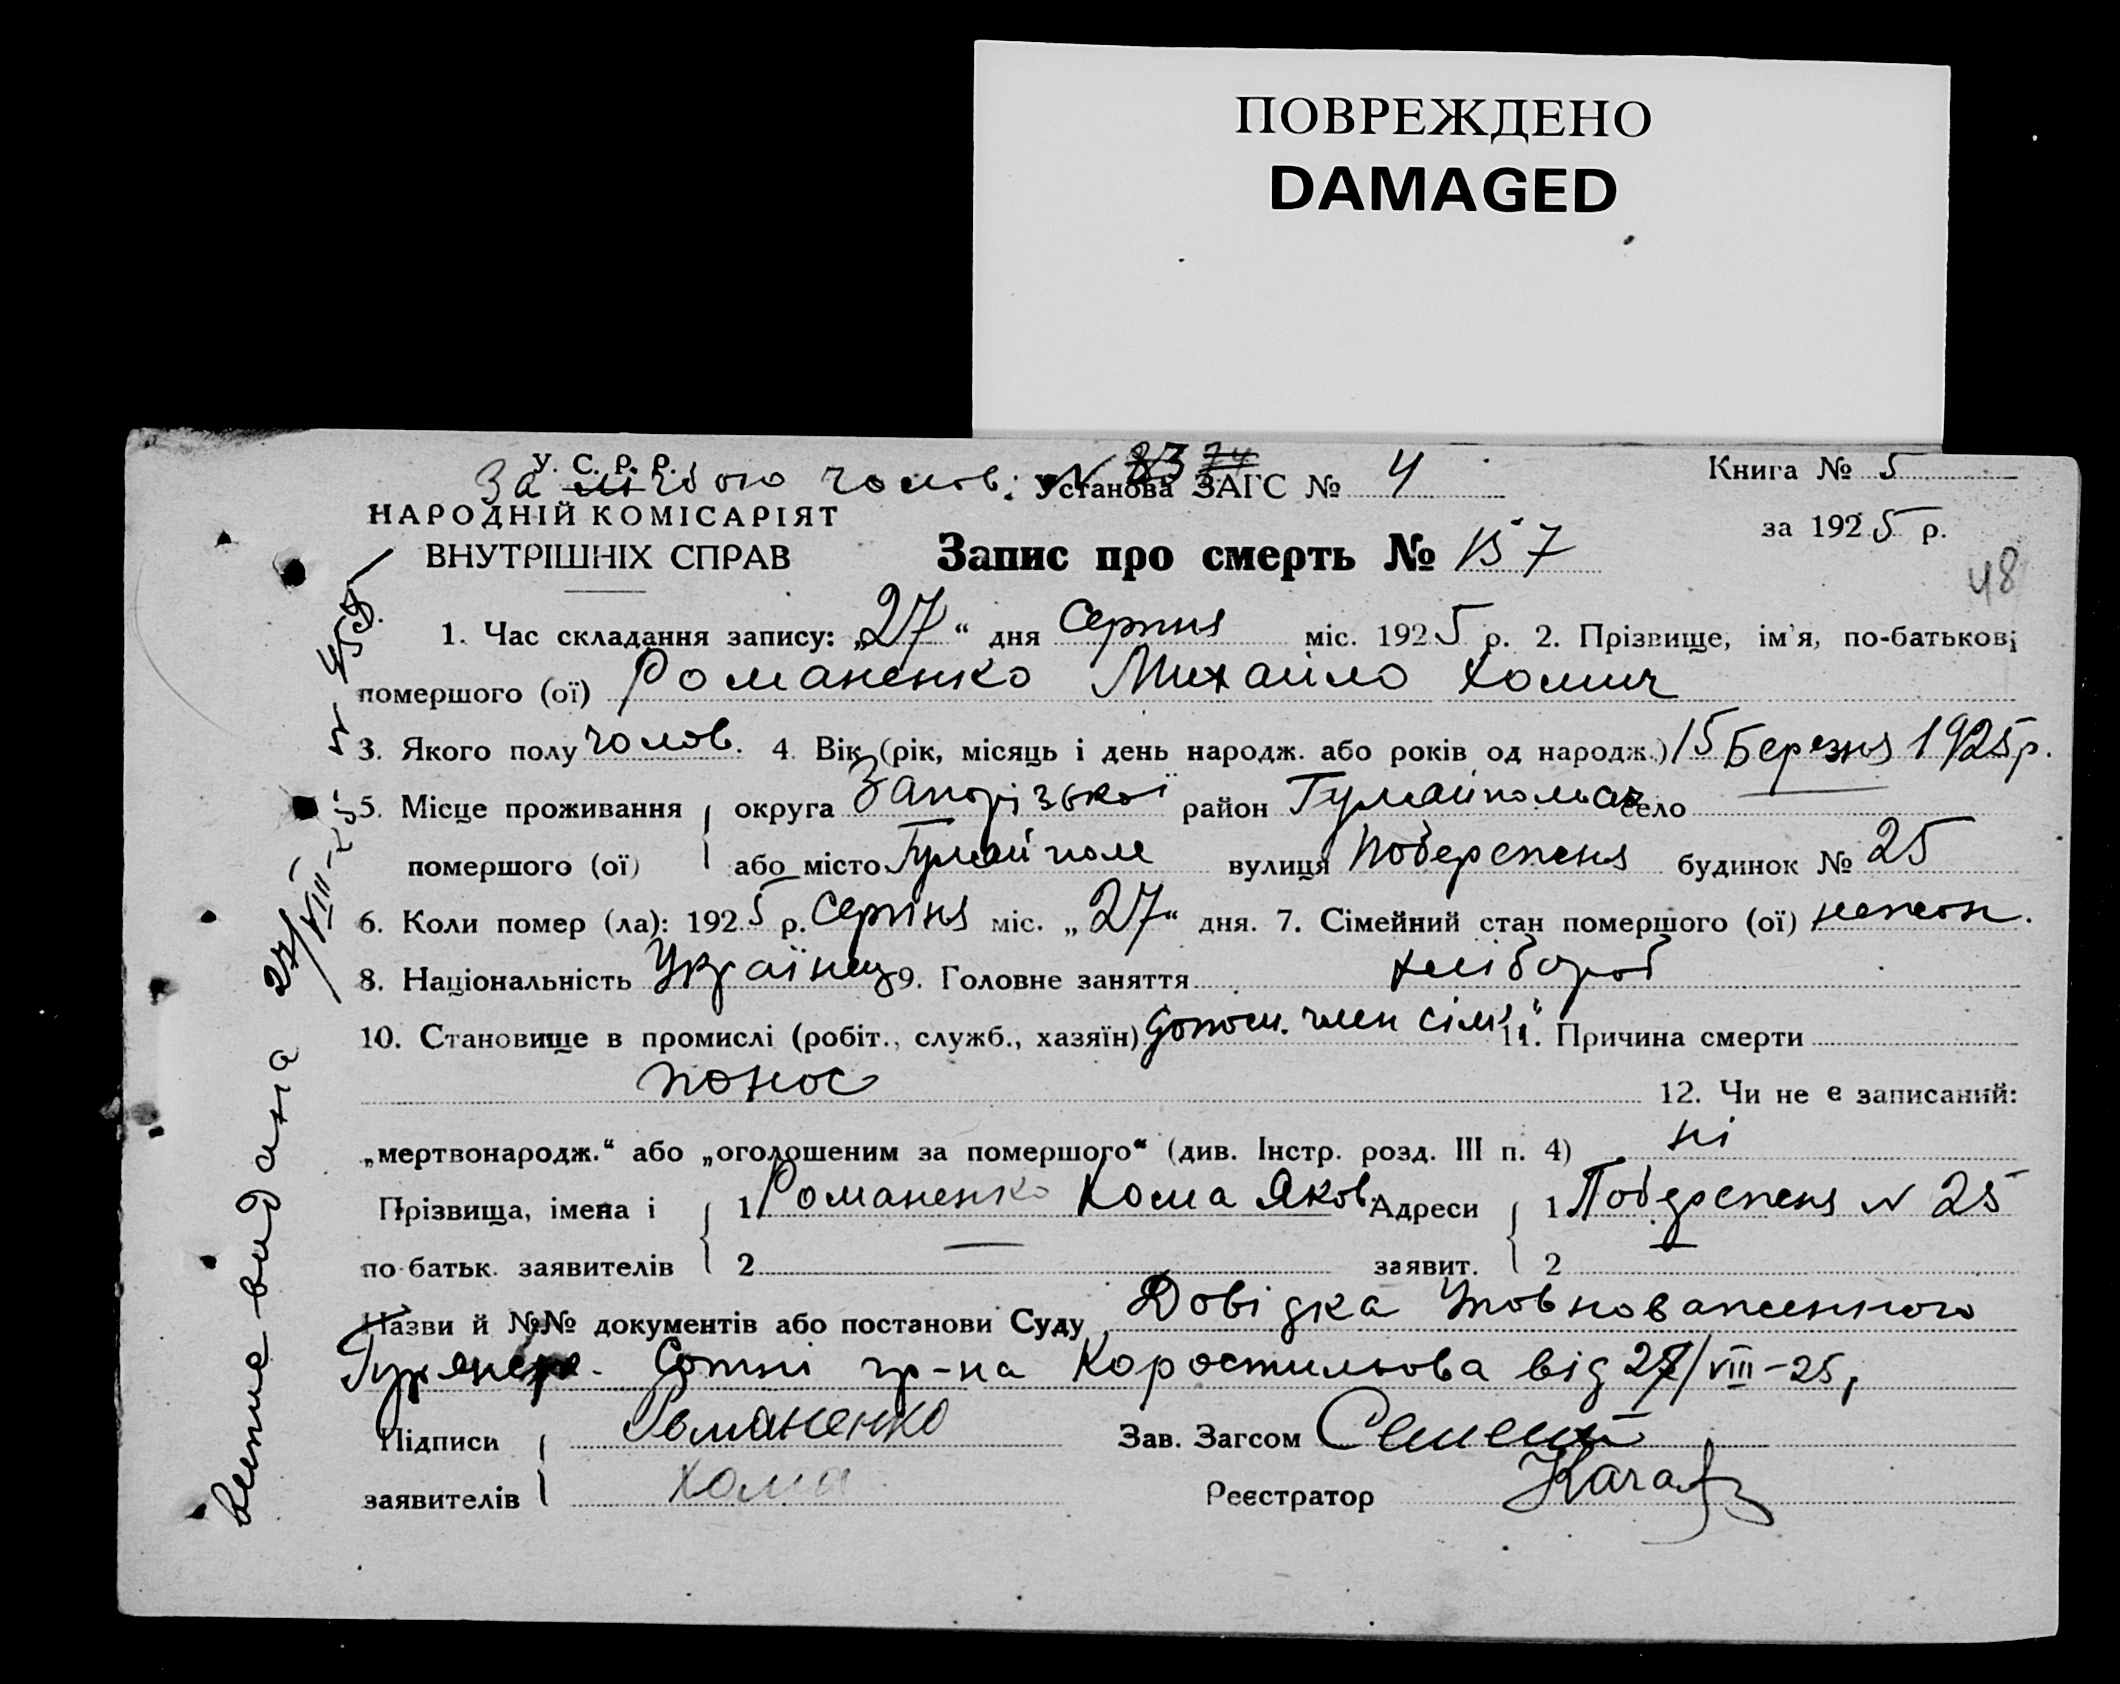 ПОВРЕЖДЕНО
DAMAGED
У. С. Р. Р.
За лічбою чолов. № 83 74
Установа ЗАГС № 4
Книга № 5
НАРОДНІЙ КОМІСАРІЯТ
ВНУТРІШНІХ СПРАВ
за 1925 р.
Запис про смерть № 157
48
1. Час складання запису: „27“ дня Серпня міс. 1925 р. 2. Прізвище, ім'я, по-батькові
помершого (ої) Романенко Михайло Хомич
3. Якого полу чолов. 4. Вік (рік, місяць і день народж. або років од народж.) 15 Березня 1925 р.
5. Місце проживання округа Запорізької район Гуляйпольск село
помершого (ої) або місто Гуляй поле вулиця Побережня будинок № 25
6. Коли помер (ла): 1925 р. Серпня міс. „27“ дня. 7. Сімейний стан помершого (ої) нежон.
8. Національність Українец 9. Головне заняття хлібороб
10. Становище в промислі (робіт., служб., хазяїн) допом. член сім'ї 11. Причина смерти
понос
12. Чи не є записаний:
„мертвонародж.“ або „оголошеним за помершого“ (див. Інстр. розд. III п. 4) ні
Прізвища, імена і 1 Романенко Хома Яков. Адреси 1 Побережня № 25
по батьк. заявителів 2 — заявит. 2 —
Назви й №№ документів або постанови Суду Довідка Уповноваженного
Сотні гр-на Коростильова від 27/VIII-25,
Підписи Романенко Зав. Загсом
заявителів Хома Реєстратор
видана 27/VIII-25 № 459